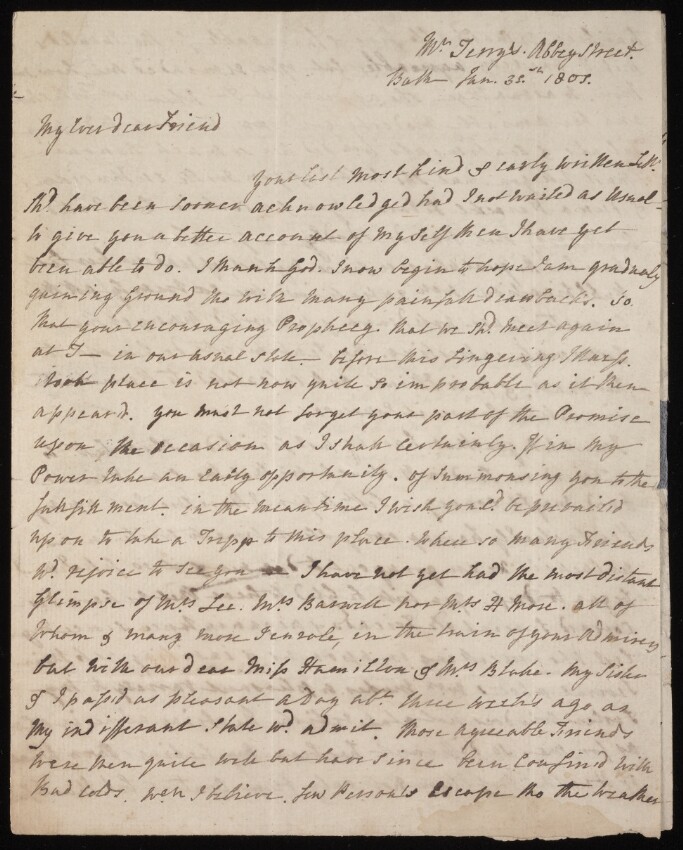 Mrs Terry's. Abbey Street.
Bath Jan. 1805.
My Ever dear Friend
your last most kind & early written Lettr
shd have been sooner acknowledged had I not waited as usual
to give you a better account of myself then I have yet
been able to do. I thank God. I now begin to hope I am gradualy
gaining ground tho with many painfull drawbacks. so
that your encouraging Prophecy. that we shd meet again
at T— in our usual state. before this Lingering Illness.
took place is not now quite so improbable as it then
appeard. you must not forget your part of the Promise
upon the occasion as I shall certainly. If in my
Power take an early opportunity. of summonsing you to the
fulfillment. in the mean time I wish you cd be prevaild
upon to take a Tripp to this place. where so many Friends
wd rejoice to see you I have not yet had the most distant
Glimpse of Mrs Lee. Mrs Barwell nor Mrs H More. all of
whom & many more I enrole, in the train of your Admirers,
but with our dear Miss Hamilton & Mrs Blake. my Sister
& I pass'd as pleasant a Day abt three weeks ago as
my indifferant state wd admit. those agreeable Friends
were then quite well but have since been confin'd with
bad colds. wch I believe. few Persons escape tho the weather